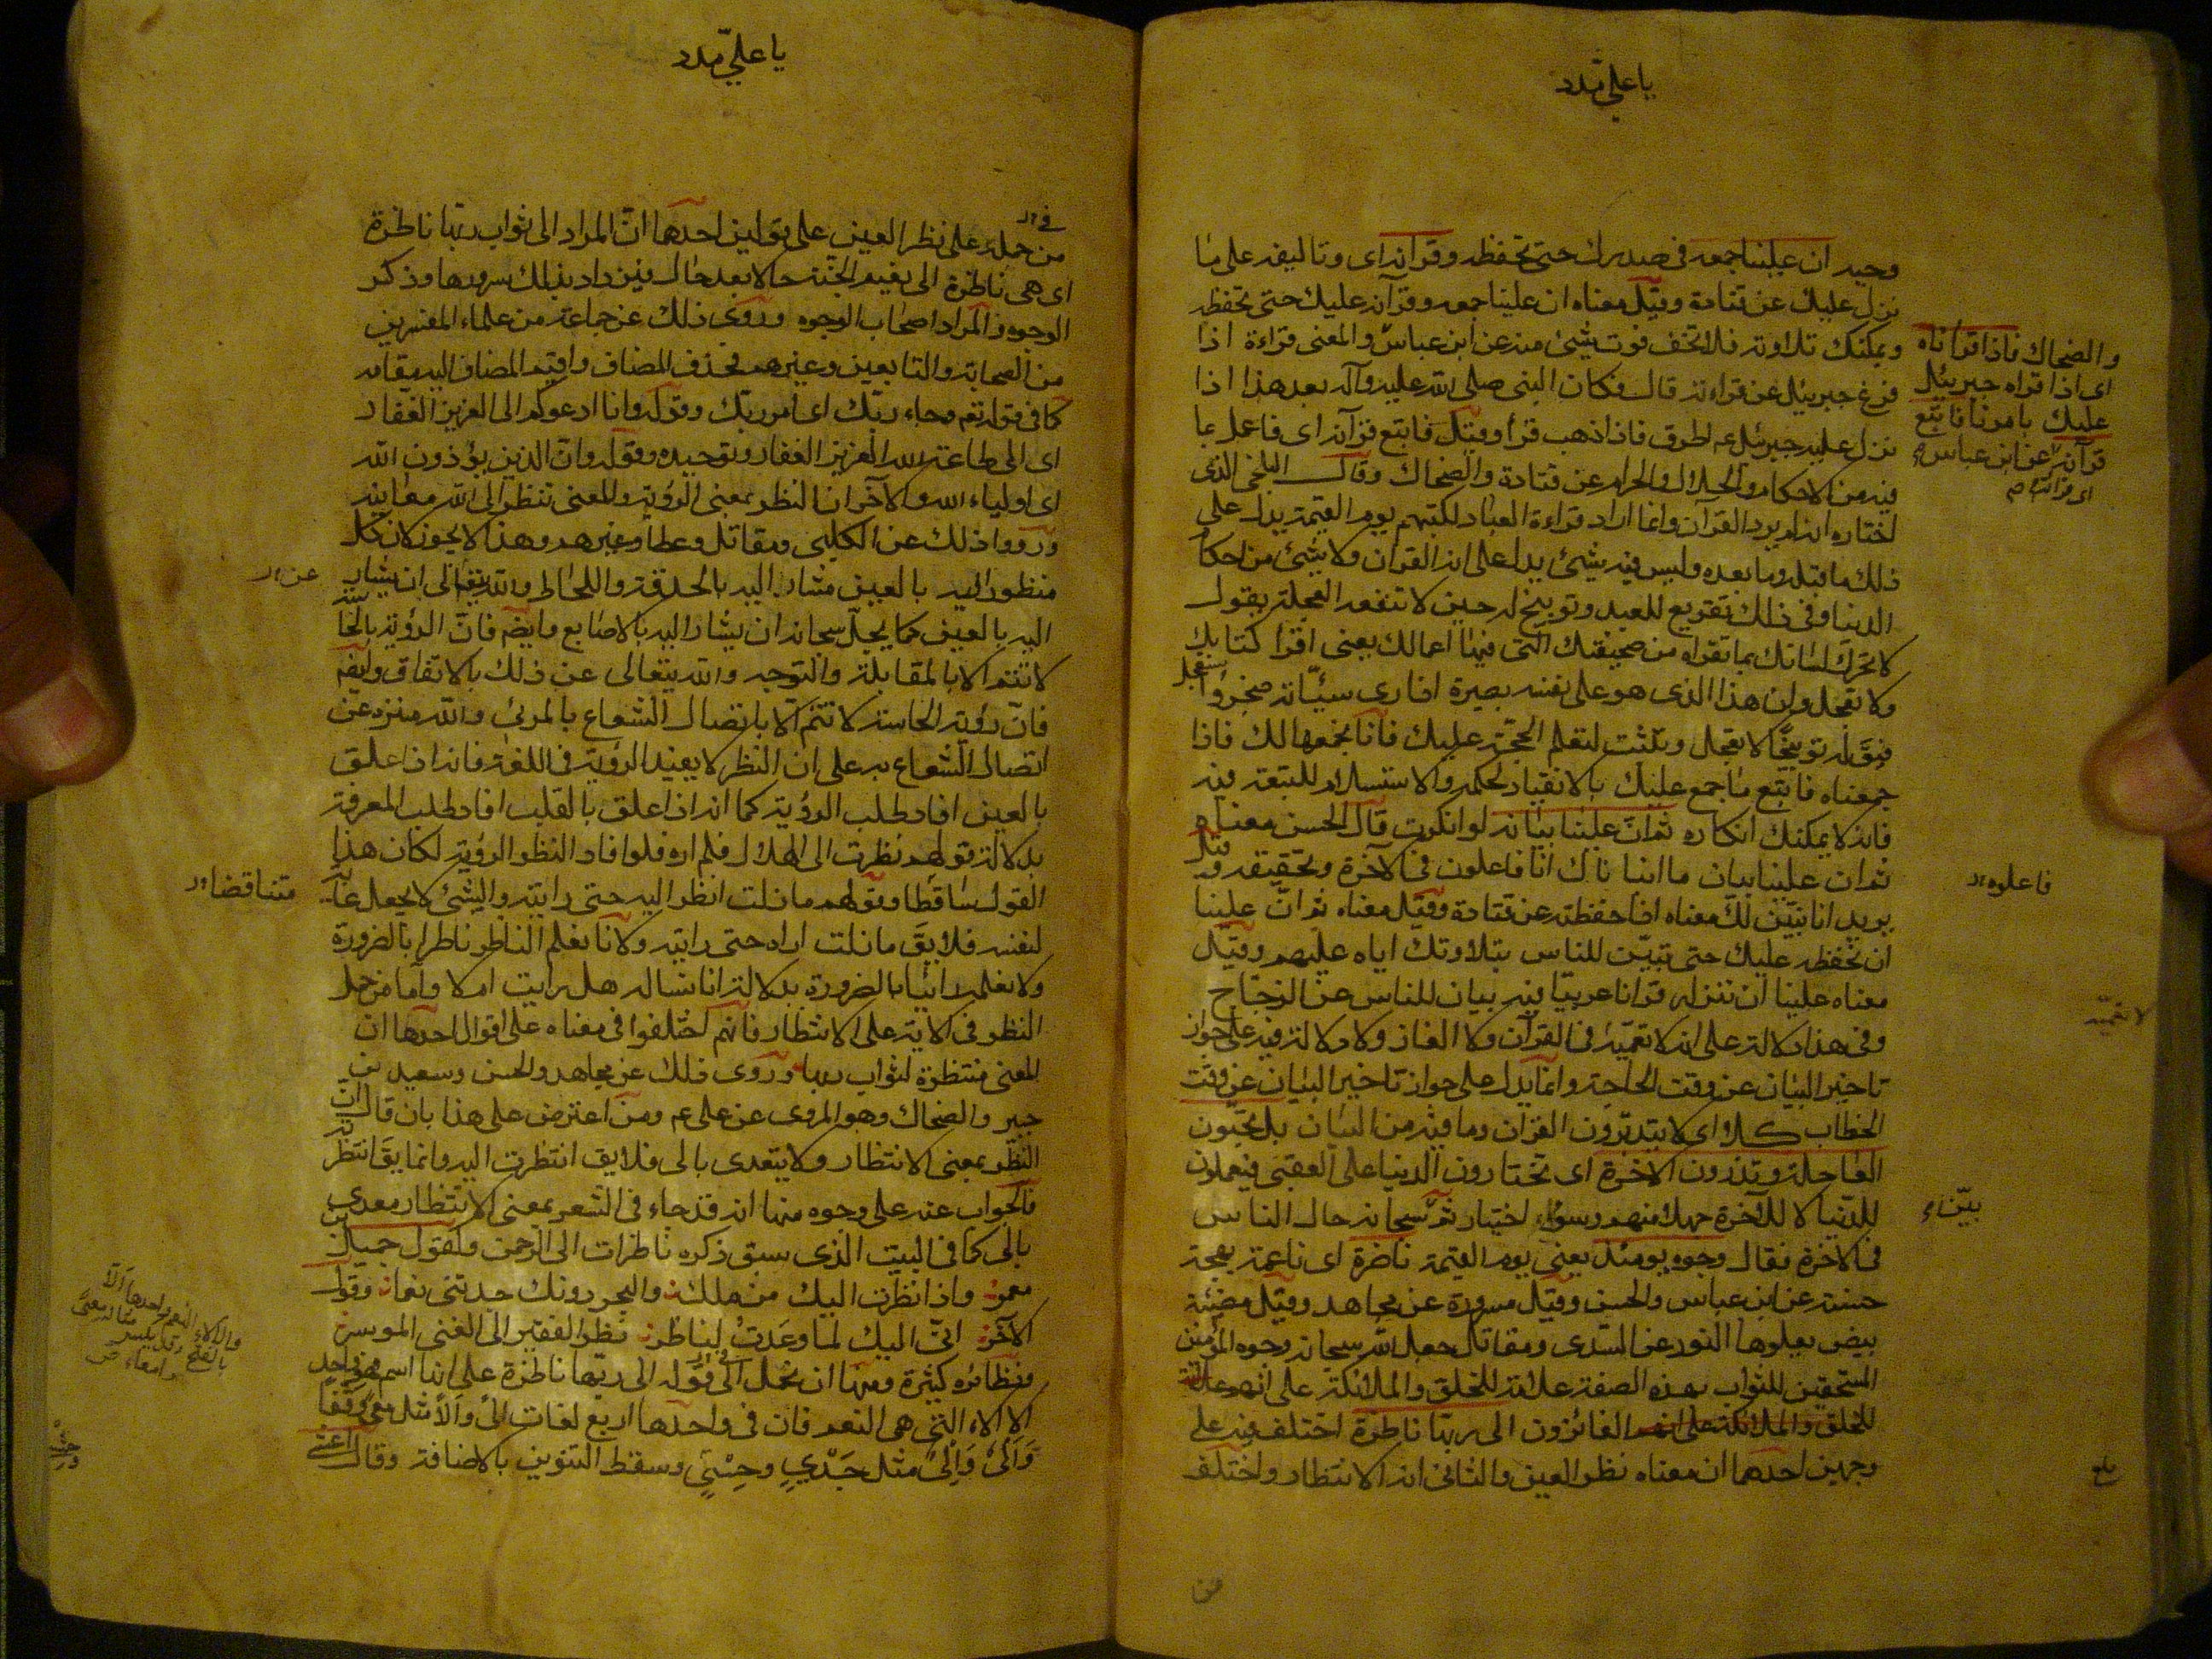 يا علي مدد
وحيه ان علينا جمعه في صدرك حتى تحفظه وقرآنه اى وتاليفه على ما
نزل عليك عن قتادة وقيل معناه ان علينا جمعه وقرآنه عليك حتى تحفظه
ويمكنك تلاوته فلا تخف فوت شيئ منه عن ابن عباس والمعنى قراءة اذا
والضحاك فاذا قرأناه
اى اذا قراه جبرئيل
عليك بامرنا فاتبع
قرآنه عن ابن عباس
اى قراءته
فرغ جبرئيل عن قراءته قال فكان النبى صلى الله عليه وآله بعد هذا اذا
نزل عليه جبرئيل عم اطرق فاذا ذهب قرأ وقيل فاتبع قرآنه اى فاعمل بما
فيه من الاحكام والحلال والحرام عن قتادة والضحاك وقال البلخى الذى
اختاره انه لم يرد القرآن وانما اراد قراءة العباد لكتبهم يوم القيمة يدل على
ذلك ما قبله وما بعده وليس فيه شيئ يدل على انه القران ولا شيئ من احكام
الدنيا وفى ذلك تقريع للعبد وتوبيخ له حين لا تنفعه العجلة يقول
لا تحرك لسانك بما تقراه من صحيفتك التى فيها اعمالك يعنى اقرا كتابك
ولا تعجل ولان هذا الذى هو على نفسه بصيرة اذا رى سيئاته ضجر واستعجل
فيقال له توبيخا لا تعجل وتثبت لتعلم الحجة عليك فانا نجمعها لك فاذا
جمعناه فاتبع ما جمع عليك بالانقياد لحكمه والاستسلام للتبعة فيه
فانه لا يمكنك انكاره ثم ان علينا بيانه لو انكرت قال الحسن معناه
ثم ان علينا بيان ما انبا ناك انا فاعلون فى الآخرة وتحقيقه وقيل
فاعلوه
يريد انا نبين لك معناه اذا حفظته عن قتادة وقيل معناه ثم ان علينا
ان نحفظه عليك حتى تبين للناس بتلاوتك اياه عليهم وقيل
معناه علينا ان ننزله قرانا عربيا فيه بيان للناس عن الزجاج
وفى هذا دلالة على انه لا تعمية فى القرآن ولا الغاز ولا دلالة فيه على جواز
تاخير البيان عن وقت الحاجة وانما يدل على جواز تاخير البيان عن وقت
الخطاب كلا اى لا يتدبرون القران وما فيه من البيان بل تحبون
العاجلة وتذرون الاخرة اى تختارون الدنيا على العقبى فيعملون
للدنيا لا للآخرة جهلا منهم وسوء اختيار ثم بين سبحانه حال الناس
فى الاخرة فقال وجوه يومئذ يعنى يوم القيمة ناضرة اى ناعمة بهجة
حسنة عن ابن عباس والحسن وقيل مسرورة عن مجاهد وقيل مضيئة
بيض يعلوها النور عن السدى ومقاتل جعل الله سبحانه وجوه المؤمنين
المستحقين للثواب بهذه الصفة علامة للخلق والملائكة على انهم
للخلق والملائكة على انهم الفائزون الى ربها ناظرة اختلف فيه على
وجهين احدهما ان معناه نظر العين والثانى انه الانتظار واختلف
يا علي مدد
من حمله على نظر العين على قولين احدهما ان المراد الى ثواب ربها ناظرة
اى هى ناظرة الى نعيم الجنة حالا بعد حال فيزداد بذلك سرورها وذكر
الوجوه والمراد اصحاب الوجوه وروى ذلك عن جماعة من علماء المفسرين
من الصحابة والتابعين وغيرهم فحذف المضاف واقيم المضاف اليه مقامه
كما فى قوله تعم وجاء ربك اى امر ربك وقوله وانا ادعوكم الى العزيز الغفار
اى الى طاعة الله العزيز الغفار وتوحيده وقوله وان الذين يؤذون الله
اى اولياء الله والآخر ان النظر بمعنى الرؤية والمعنى تنظر الى الله معاينة
ورووا ذلك عن الكلبى ومقاتل وعطا وغيرهم وهذا لا يجوز لان كل
منظور اليه بالعين مشار اليه بالحدقة واللحاظ والله يتعالى ان يشار
عن
اليه بالعين كما يجل سبحانه ان يشار اليه بالاصابع وايضم فان الرؤية بالحاسة
لا تتم الا بالمقابلة والتوجه والله يتعالى عن ذلك بالاتفاق وايضم
فان رؤية الحاسة لا تتم الا باتصال الشعاع بالمرئى والله منزه عن
اتصال الشعاع به على ان النظر لا يفيد الرؤية فى اللغة فانه اذا علق
بالعين افاد طلب الرؤية كما انه اذا علق بالقلب افاد طلب المعرفة
بدلالة قولهم نظرت الى الهلال فلم اره فلو افاد النظر الرؤية لكان هذا
القول ساقطا وقولهم ما زلت انظر اليه حتى رايته والشئ لا يجعل غاية
متناقضا
لنفسه فلا يق ما زلت اراه حتى رايته ولانا نعلم الناظر ناظرا بالضرورة
ولا نعلمه رائيا بالضرورة بدلالة انا نساله هل رايت ام لا واما من حمل
النظر فى الاية على الانتظار فانهم اختلفوا فى معناه على اقوال احدها ان
المعنى منتظرة لثواب ربها وروى ذلك عن مجاهد والحسن وسعيد بن
جبير والضحاك وهو المروى عن على عم ومن اعترض على هذا بان قال ان
النظر بمعنى الانتظار ولا يتعدى بالى فلا يق انتظرت اليه وانما يق انتظرته
فالجواب عنه على وجوه منها انه قد جاء فى الشعر بمعنى الانتظار معدى
بالى كما فى البيت الذى سبق ذكره ناظرات الى الرحمن وكقول جميل بن
معمر واذا نظرت اليك من ملك والبحر دونك جدتنى نعما وقول
الآخر انى اليك لما وعدت لناظر نظر الفقير الى الغنى الموسر
ونظائره كثيرة ومنها ان تحمل الى فى قوله الى ربها ناظرة على انها اسم فهو واحد
الالاء التى هى النعم فان فى واحدها اربع لغات الى والا مثل معى وقفا
والى والى مثل جدي وحسي وسقط التنوين بالاضافة وقال اعشى